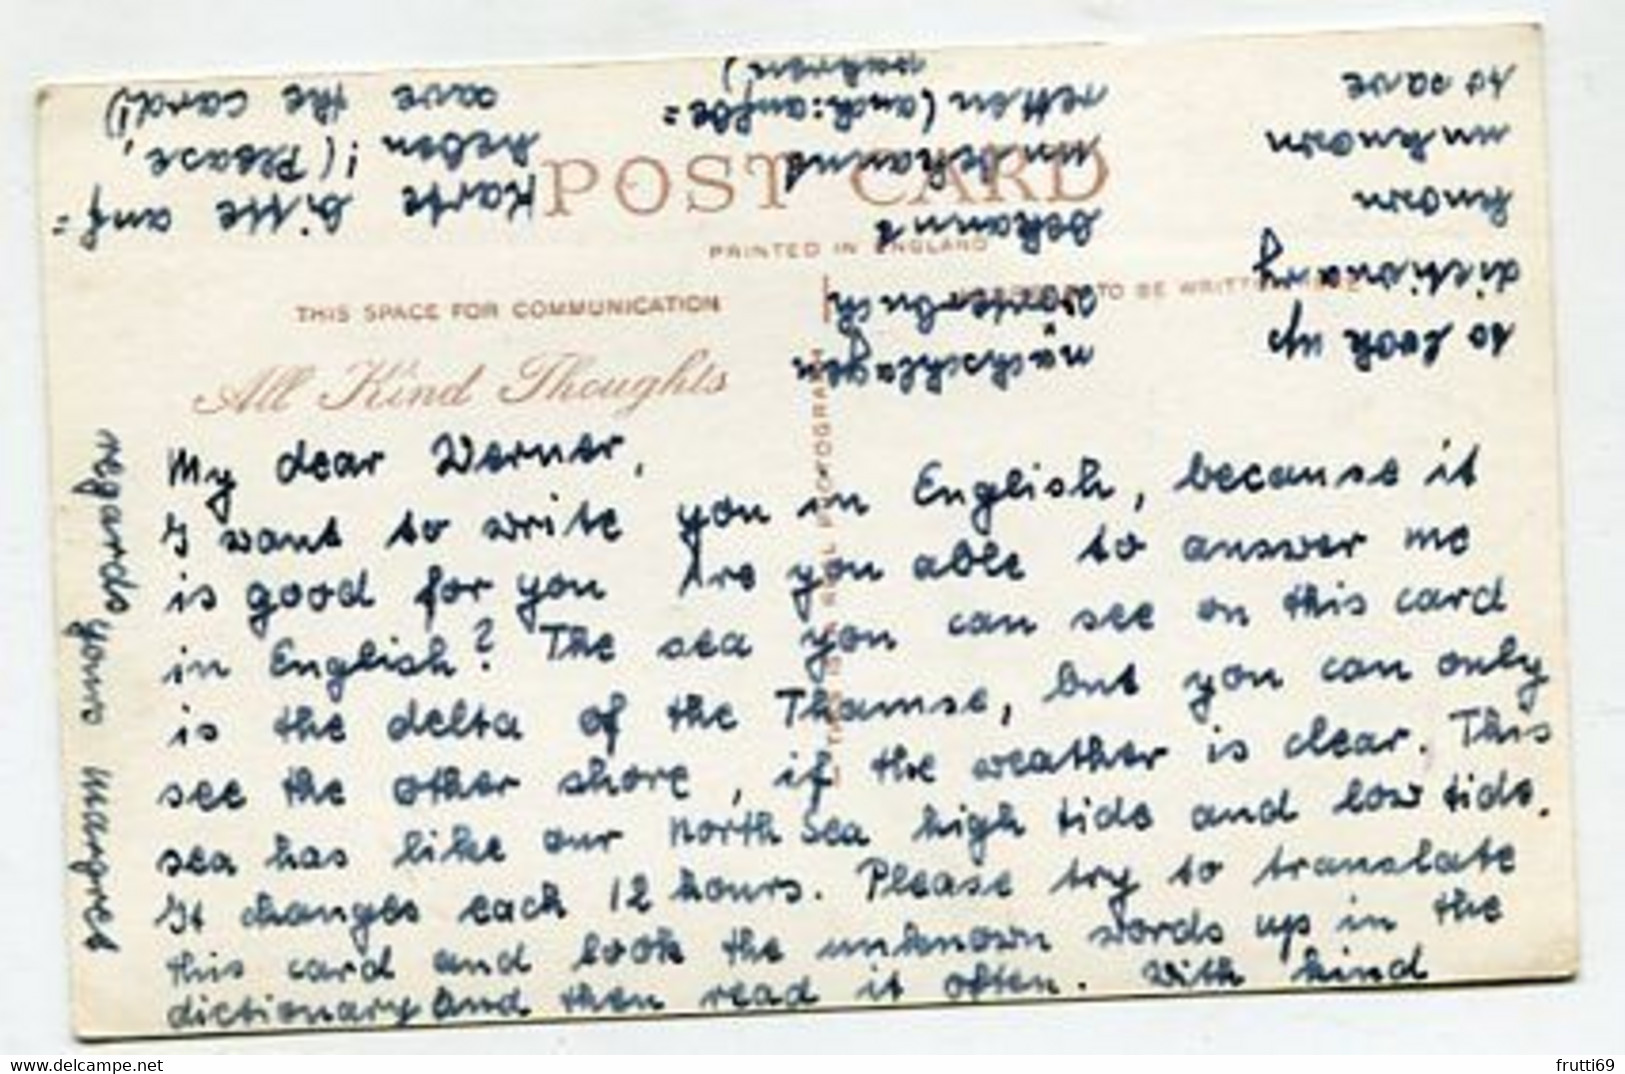 POST CARD
PRINTED IN ENGLAND
THIS SPACE FOR COMMUNICATION
TO BE WRITTEN HERE
All Kind Thoughts
My dear Werner,
I want to write you in English, because it
is good for you Are you able to answer me
in English? The sea you can see on this card
is the delta of the Thamse, but you can only
see the other shore, if the weather is clear. This
sea has like our North Sea high tide and low tide.
It changes each 12 hours. Please try to translate
this card and look the unknown words up in the
dictionary and then read it often. With kind
regards your Margret
to look up nachschlagen
dictionary Wörterbuch
known bekannt
unknown unbekannt
to save retten (auch: aufbe=
wahren)
Karte bitte auf=
heben! (Please,
save the card!)
THIS IS A REAL PHOTOGRAPH
frutti69